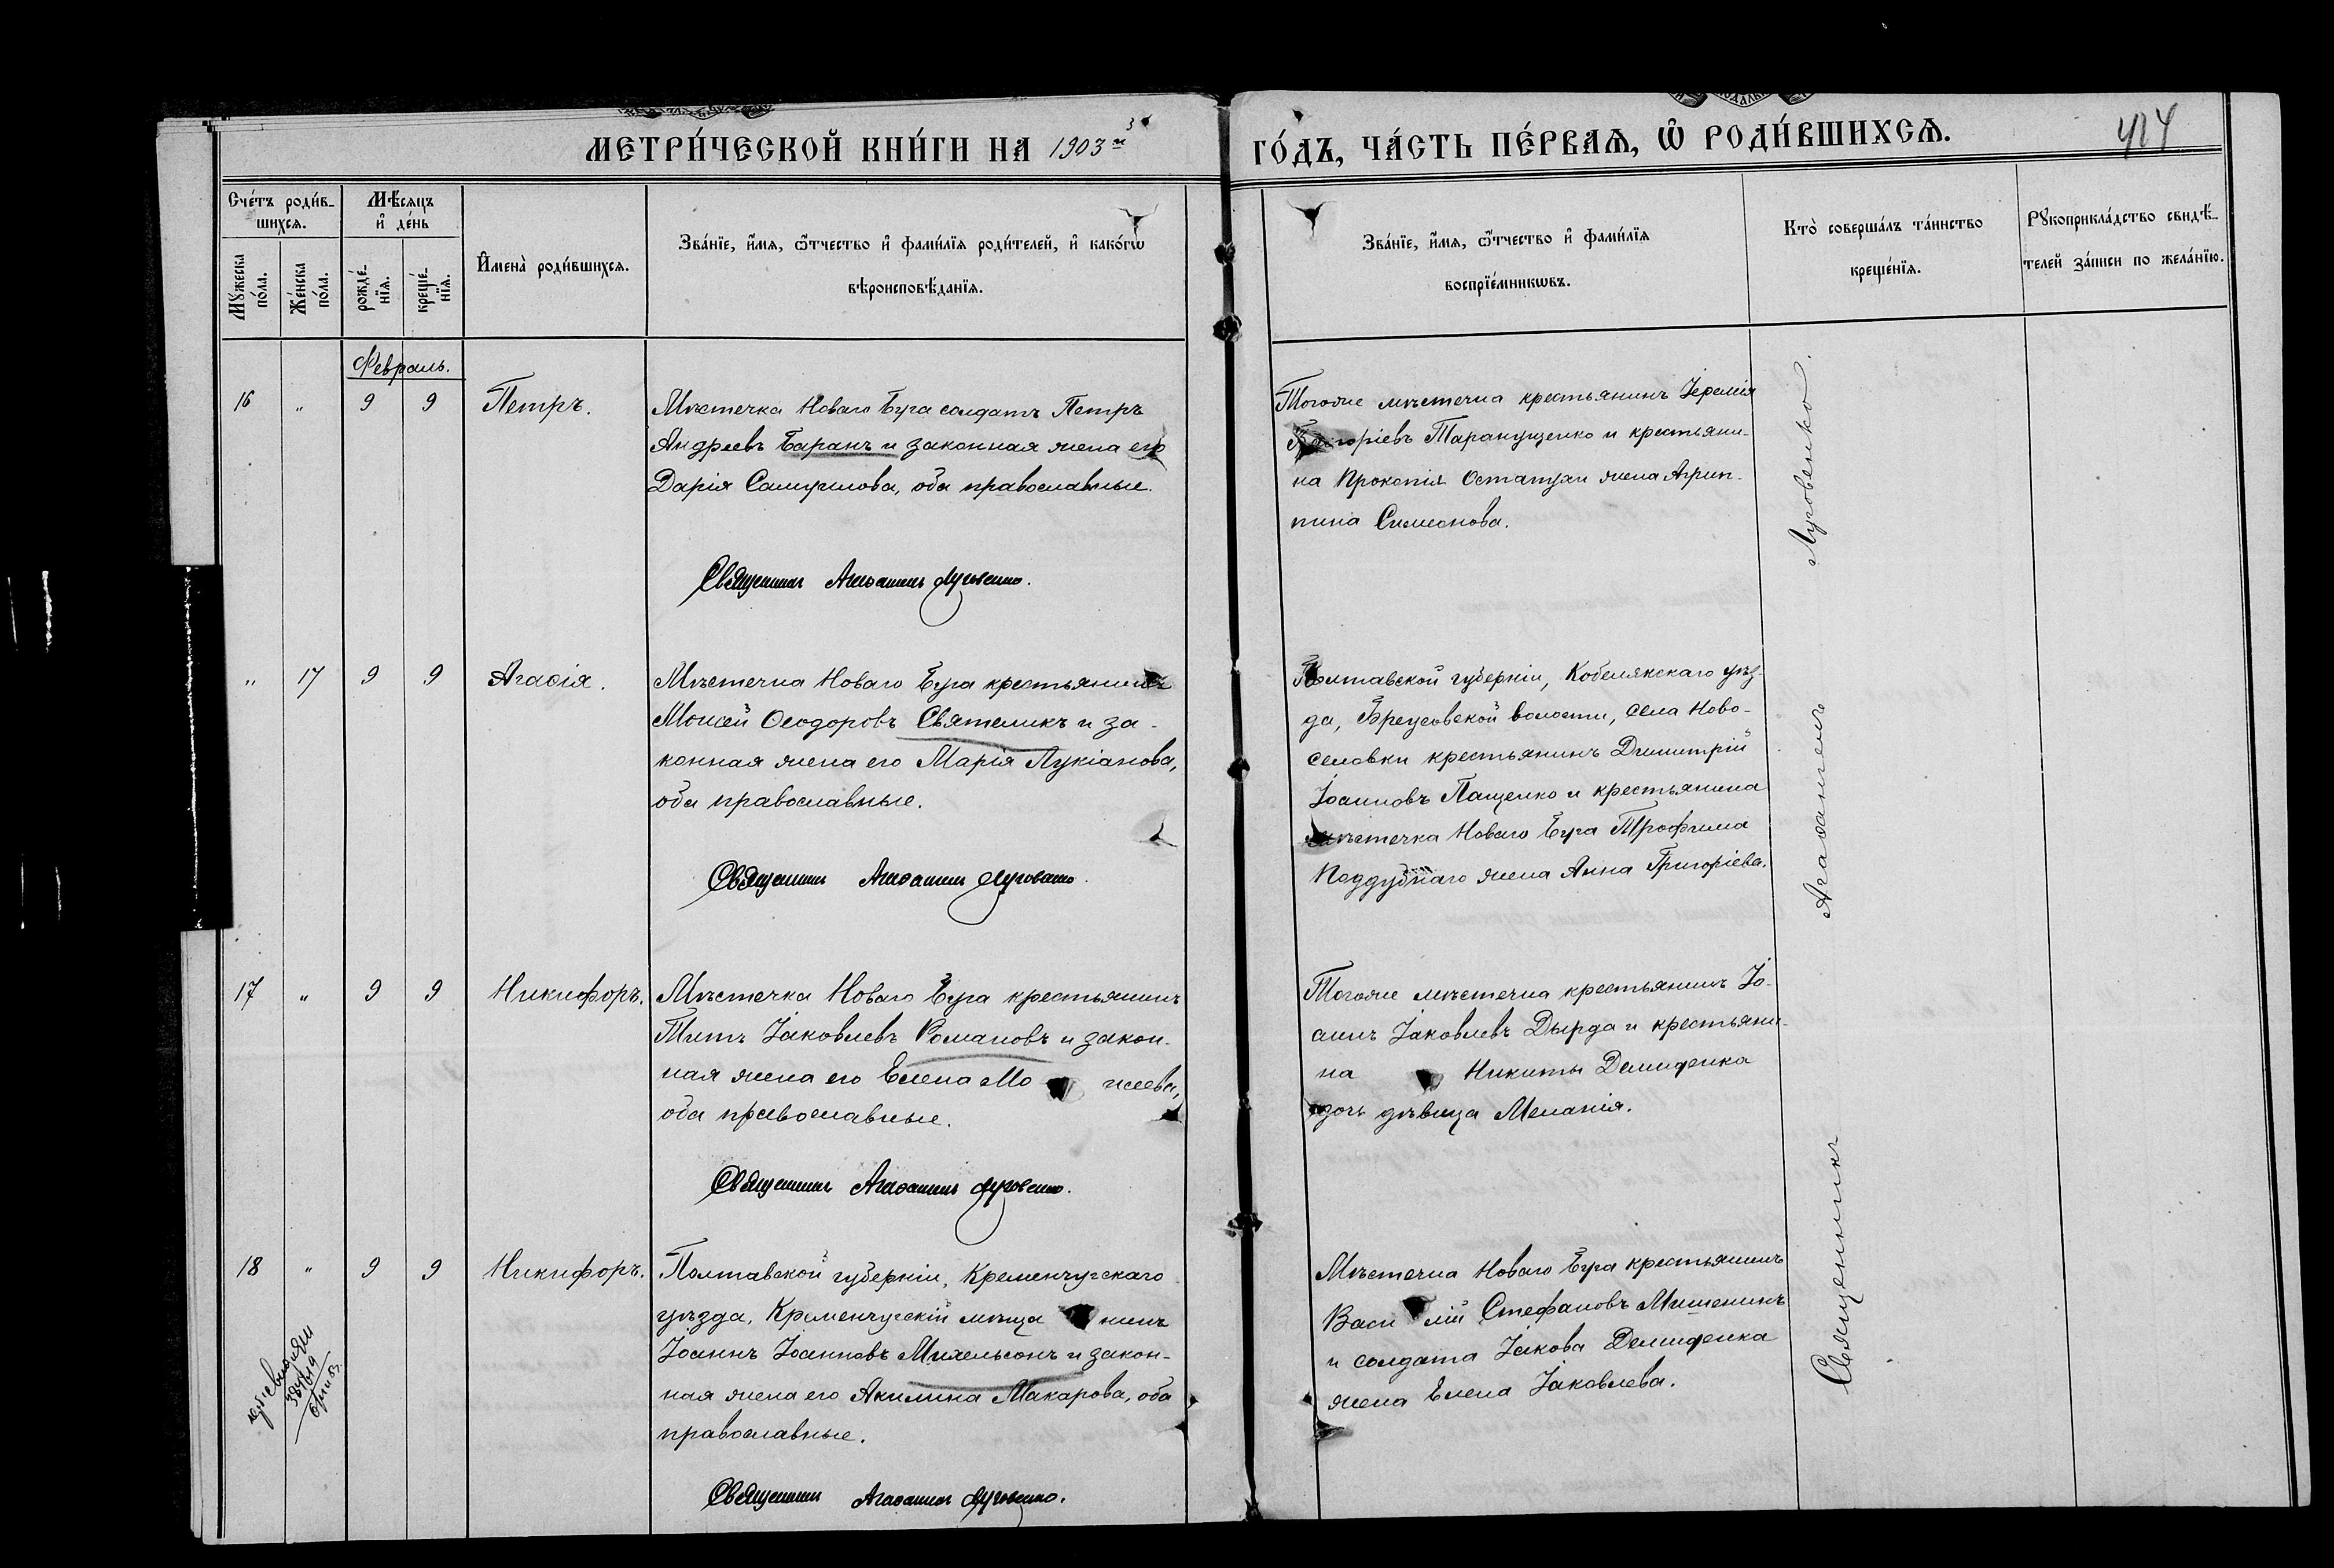 МЕТРИ́ЧЕСКОЙ КНИ́ГИ НА 1903 й
ГО́ДЪ, ЧА́СТЬ ПЕ́РВАѦ, Ѿ РОДИ́ВШИХСѦ.
Сче́тъ роди́в-
шихсѧ.
Мѣ́сѧцъ
и҆ де́нь
И҆мена̀ роди́вшихсѧ.
Зва́нїе, и҆́мѧ, ѻ҆́тчество и҆ фами́лїѧ роди́телей, и҆ како́гѡ
вѣроисповѣ́данїѧ.
Мꙋ́жеска
по́ла.
Же́нска
по́ла.
рожде́-
нїѧ.
креще́-
нїѧ.
Зва́нїе, и҆́мѧ, ѻ҆́тчество и҆ фами́лїѧ
воспрїе́мникѡвъ.
Кто̀ соверша́лъ та́инство
креще́нїѧ.
Рꙋкоприкла́дство свидѣ́-
телей за́писи по жела́нїю.
Февраль.
16 " 9 9 Петръ.
Мѣстечка Новаго Буга солдатъ Петръ
Андреевъ Баранъ и законная жена его
Дарія Самуилова, оба православные.
Священникъ Агаѳангелъ Луговенко.
Тогоже мѣстечка крестьянинъ Іеремія
Григоріевъ Таранущенко и крестьяни-
на Прокопія Остапухи жена Агрип-
пина Симеонова.
" 17 9 9 Агаѳія.
Мѣстечка Новаго Буга крестьянинъ
Моисей Ѳеодоровъ Святеликъ и за-
конная жена его Марія Лукіанова,
оба православные.
Священникъ Агаѳангелъ Луговенко.
Полтавской губерніи, Кобелякскаго уѣз-
да, Бреусовской волости, села Ново-
селовки крестьянинъ Димитрій
Іоанновъ Пащенко и крестьянина
мѣстечка Новаго Буга Трофима
Поддубнаго жена Анна Григоріева.
17 " 9 9 Никифоръ.
Мѣстечка Новаго Буга крестьянинъ
Титъ Іаковлевъ Романовъ и закон-
ная жена его Елена Мо исеева,
оба православные.
Священникъ Агаѳангелъ Луговенко.
Тогоже мѣстечка крестьянинъ Іо-
аннъ Іаковлевъ Дырда и крестьяни-
на Никиты Демиденка
дочь дѣвица Меланія.
18 " 9 9 Никифоръ.
Полтавской губерніи, Кременчугскаго
уѣзда, Кременчугскій мѣща нинъ
Іоаннъ Іоанновъ Михельсонъ и закон-
ная жена его Акилина Макарова, оба
православные.
Священникъ Агаѳангелъ Луговенко.
Мѣстечка Новаго Буга крестьянинъ
Васи лій Стефановъ Мишенинъ
и солдата Іакова Демиденка
жена Елена Іаковлева.
Священникъ Агаѳангелъ Луговенко.